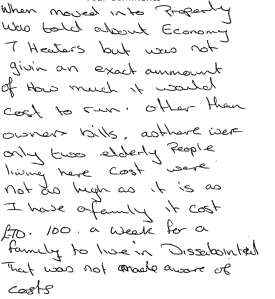 When moved into Property
Was told about Economy
7 Heaters but was not
givin an exact ammount
of How much it would
cost to run. other than
owners bills. as there were
only two elderly People
living here cost were
not as high as it is as
I have a family it cost
£70. 100. a week for a
family to live in Dissabointed
That was not made aware of
costs